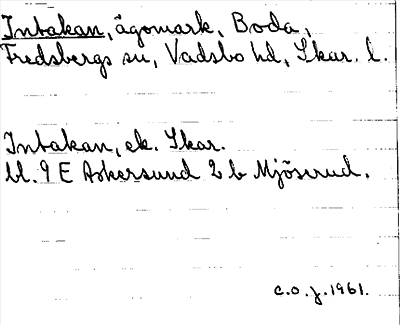 Intakan, ägomark, Boda,
Fredsbergs sn, Vadsbo hd, Skar. l.
Intakan, ek. Skar.
bl. 9 E Askersund 2 b Mjöserud.
c.o.j. 1961.